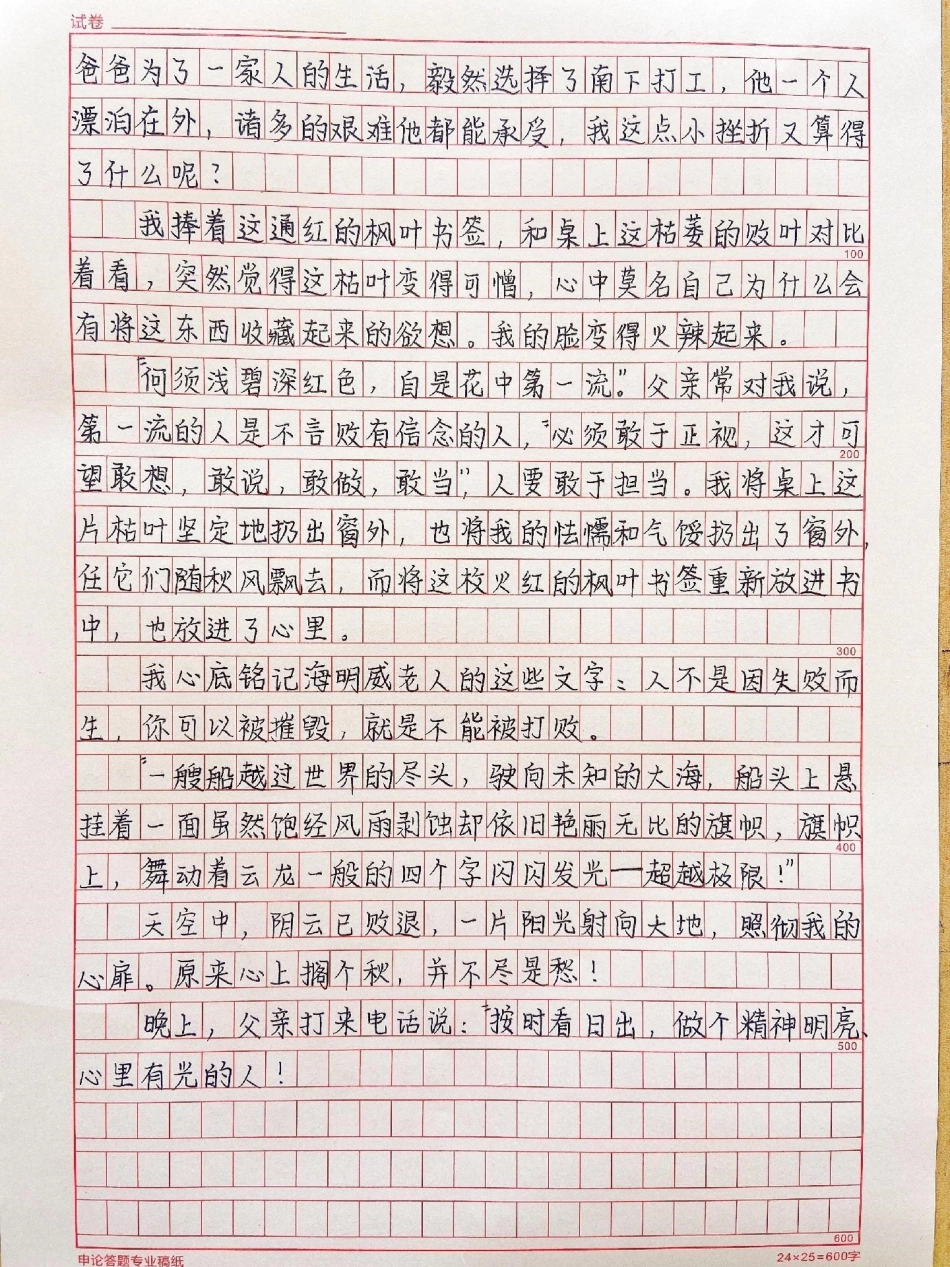 试卷
爸爸为了一家人的生活，毅然选择了南下打工，他一个人
漂泊在外，诸多的艰难他都能承受，我这点小挫折又算得
了什么呢？
我捧着这通红的枫叶书签，和桌上这枯萎的败叶对比
100
着看，突然觉得这枯叶变得可憎，心中莫名自己为什么会
有将这东西收藏起来的欲想。我的脸变得火辣起来。
“何须浅碧深红色，自是花中第一流”。父亲常对我说，
第一流的人是不言败有信念的人，“必须敢于正视，这才可
200
望敢想，敢说，敢做，敢当”，人要敢于担当。我将桌上这
片枯叶坚定地扔出窗外，也将我的怯懦和气馁扔出了窗外，
任它们随秋风飘去，而将这枚火红的枫叶书签重新放进书
中，也放进了心里。
300
我心底铭记海明威老人的这些文字：人不是因失败而
生，你可以被摧毁，就是不能被打败。
“一艘船越过世界的尽头，驶向未知的大海，船头上悬
挂着一面虽然饱经风雨剥蚀却依旧艳丽无比的旗帜，旗帜
400
上，舞动着云龙一般的四个字闪闪发光—超越极限！”
天空中，阴云已败退，一片阳光射向大地，照彻我的
心扉。原来心上搁个秋，并不尽是愁！
晚上，父亲打来电话说：“按时看日出，做个精神明亮、
500
心里有光的人！
600
申论答题专业稿纸
24×25=600字